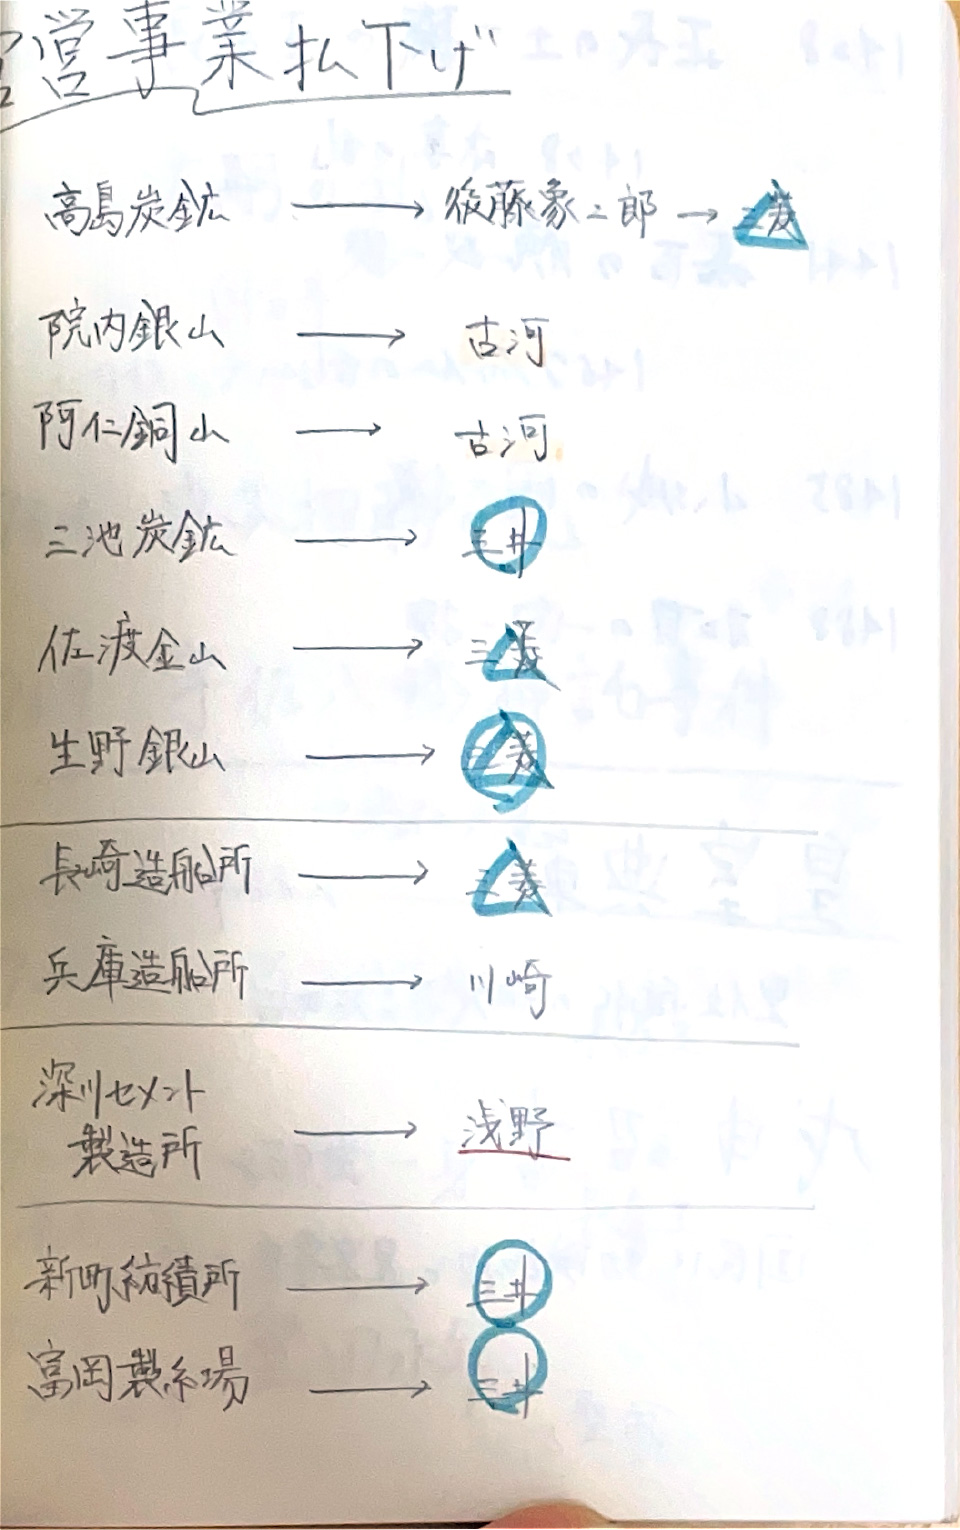 営事業払下げ
高島炭鉱 → 後藤象二郎 → 三菱
院内銀山 → 古河
阿仁銅山 → 古河
三池炭鉱 → 三井
佐渡金山 → 三菱
生野銀山 → 三菱
長崎造船所 → 三菱
兵庫造船所 → 川崎
深川セメント
製造所 → 浅野
新町紡績所 → 三井
富岡製糸場 → 三井